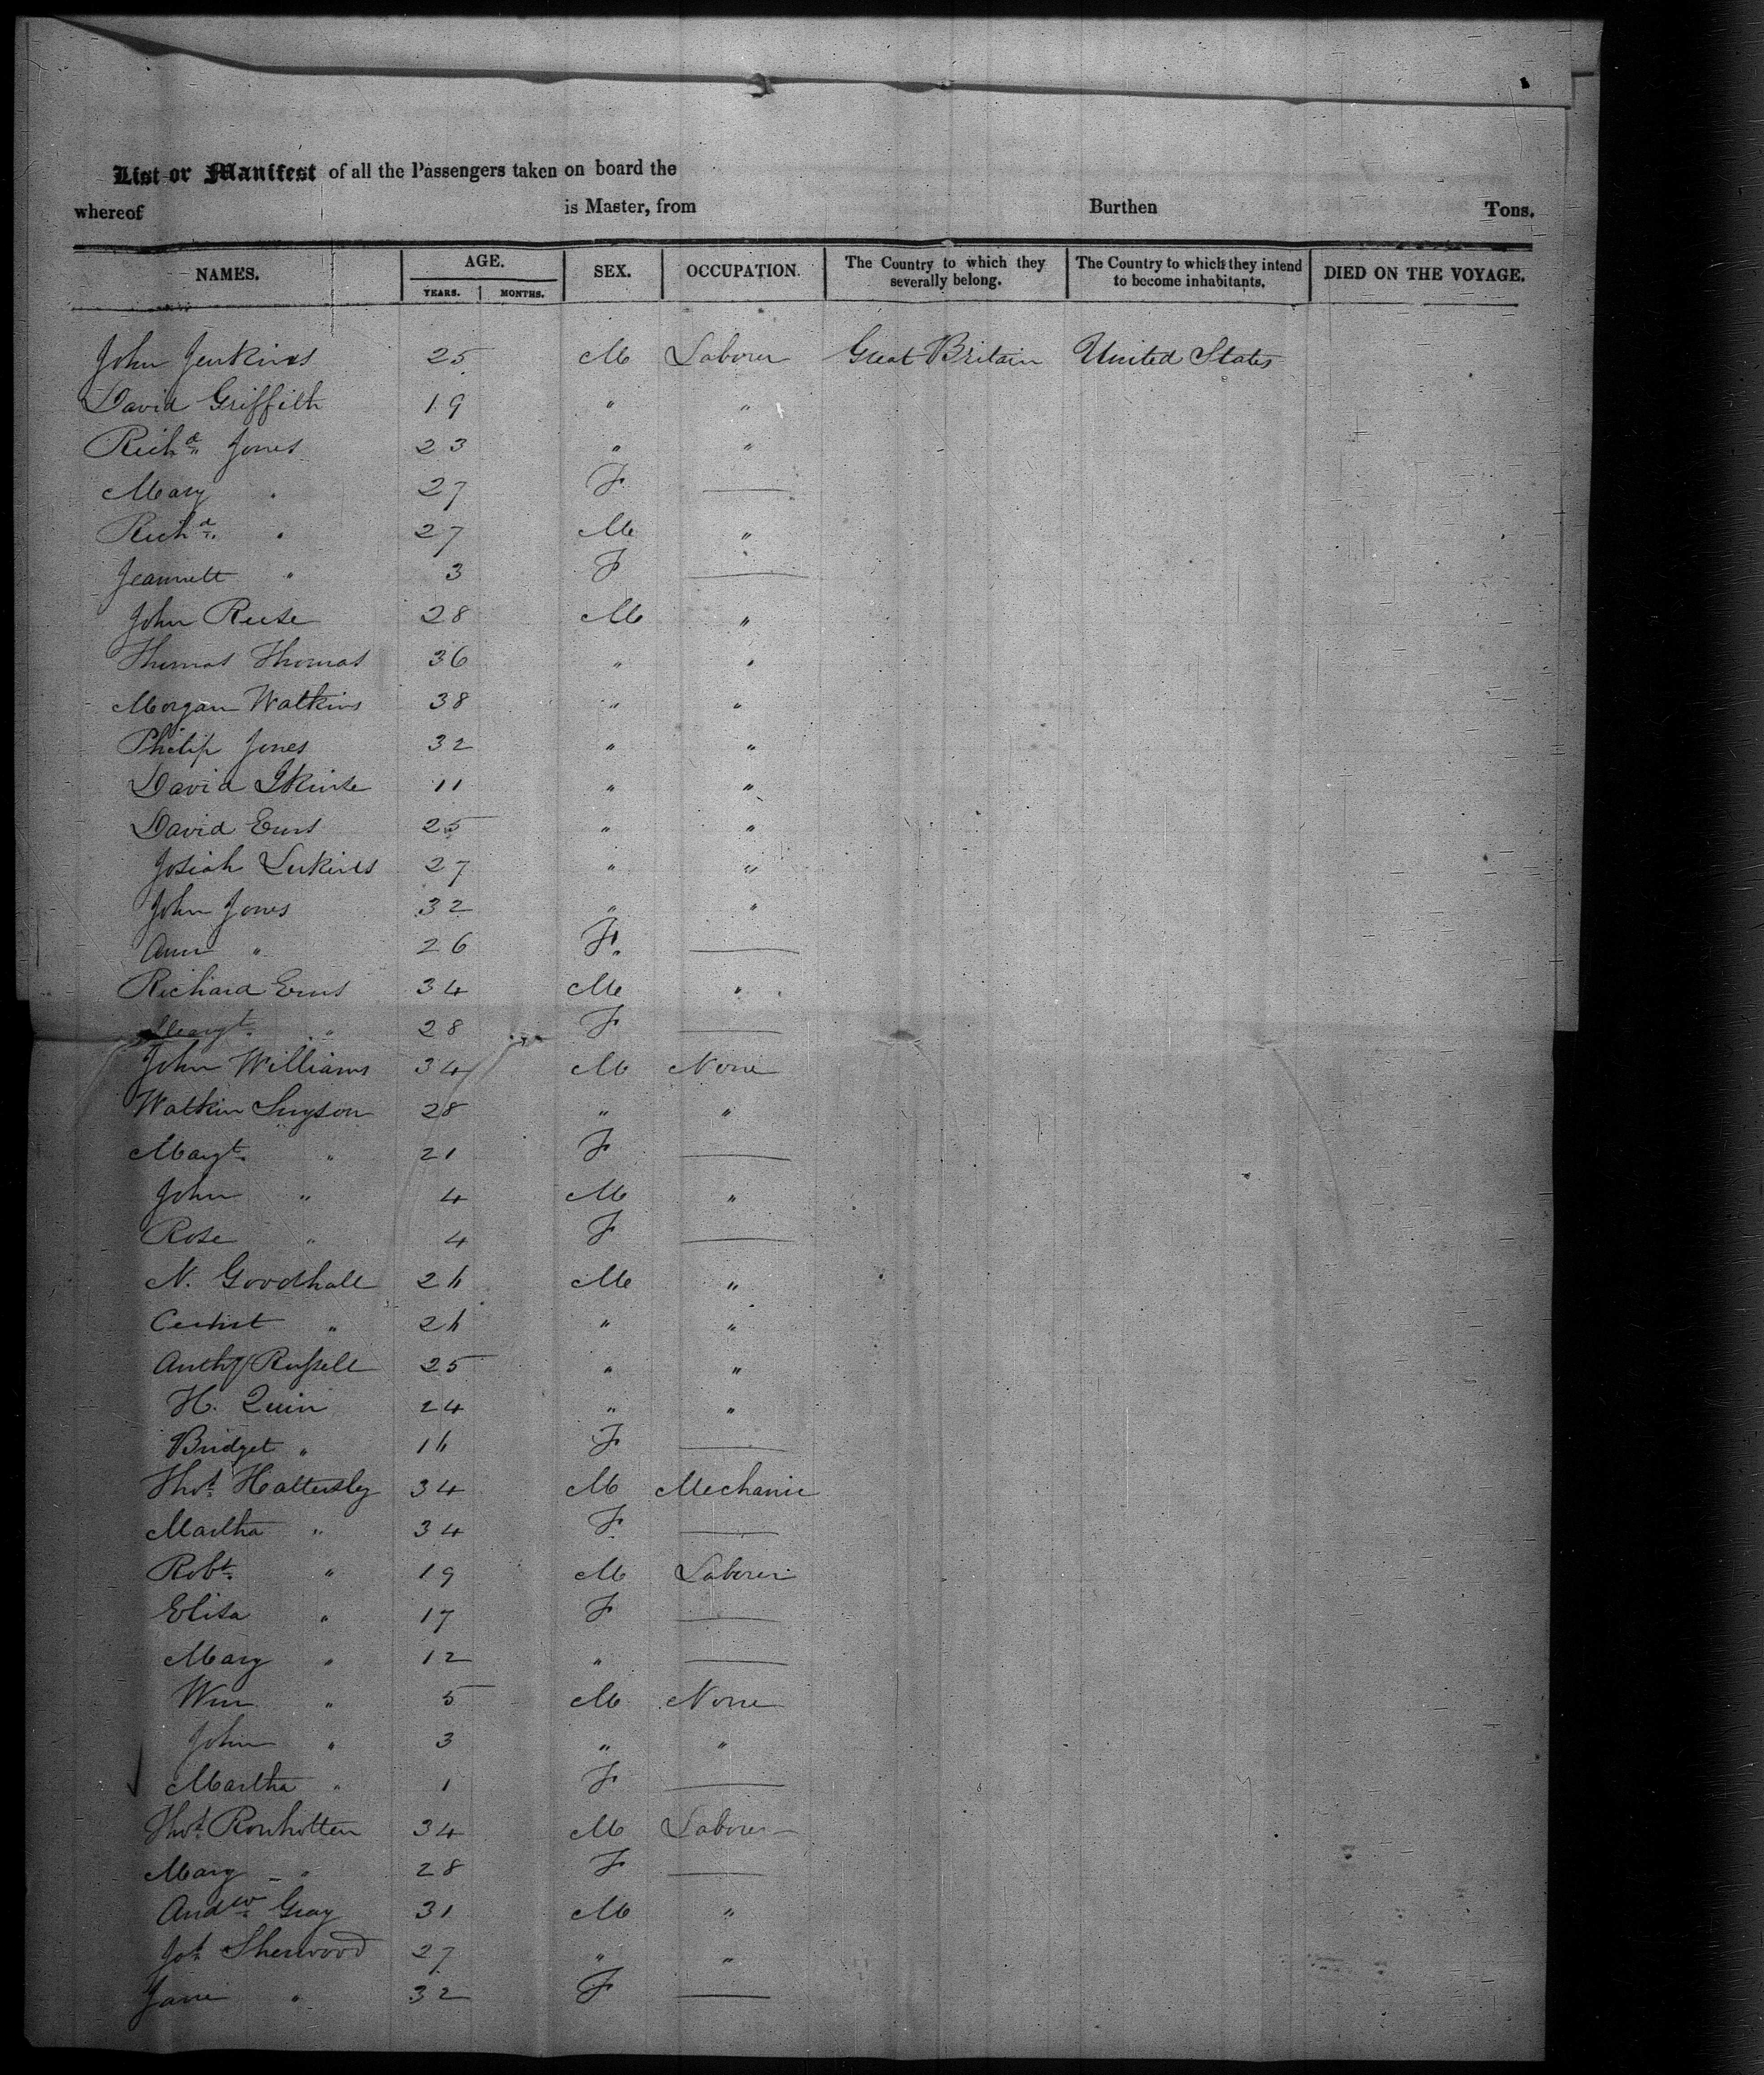 List or Manifest of all the Passengers taken on board the
whereof is Master, from Burthen Tons.
NAMES. AGE. YEARS. MONTHS. SEX. OCCUPATION. The Country to which they severally belong. The Country to which they intend to become inhabitants. DIED ON THE VOYAGE.
John Jenkins 25 M Laborer Great Britain United States
David Griffith 19 " "
Richd Jones 23 " "
Mary " 27 F —
Richd " 27 M "
Jeannett " 3 F —
John Reese 28 M "
Thomas Thomas 36 " "
Morgan Watkins 38 " "
Philip Jones 32 " "
David 11 " "
David Evans 25 " "
Josiah 27 " "
John Jones 32 " "
Ann " 26 F. —
Richard Evans 34 M "
Margt " 28 F —
John Williams 34 M None
Watkin 28 " "
Margt " 21 F —
John " 4 M "
Rose " 4 F —
N. Goodhall 26 M "
" 26 " "
Anthy Russell 25 " "
H. Quin 24 " "
Bridget " 16 F —
Thos Hattersley 34 M Mechanic
Martha " 34 F —
Robt " 19 M Laborer
Elisa " 17 F —
Mary " 12 " —
Wm " 5 M None
John " 3 " "
Martha " 1 F —
Thos 34 M Laborer
Mary " 28 F —
Andw Gray 31 M "
Jos Sherwood 27 " "
Jane " 32 F —